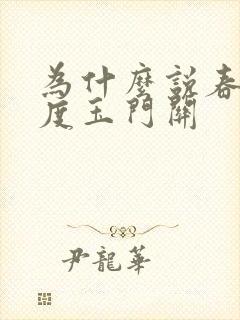 為什麼說春
度玉門關
尹龍華